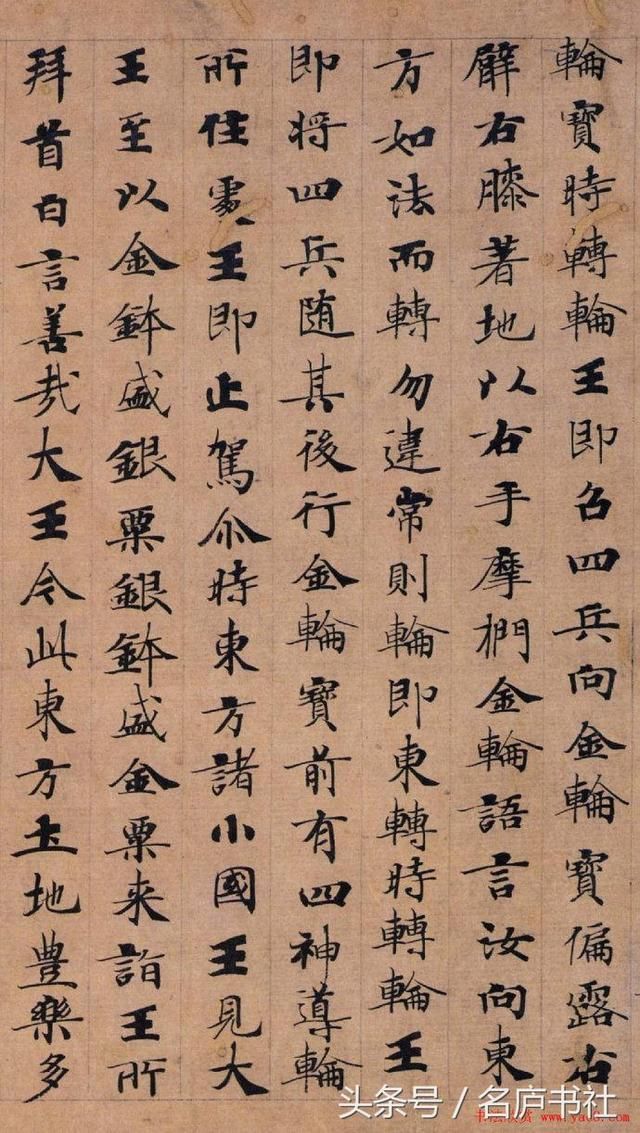 輪寶時轉輪王即召四兵向金輪寶偏露右
臂右膝著地以右手摩捫金輪語言汝向東
方如法而轉勿違常則輪即東轉時轉輪王
即將四兵随其後行金輪寶前有四神導輪
所住處王即止駕尒時東方諸小國王見大
王至以金鉢盛銀粟銀鉢盛金粟来詣王所
拜首白言善哉大王今此東方土地豊樂多
头条号/名庐书社
书法欣赏 www.yac8.com